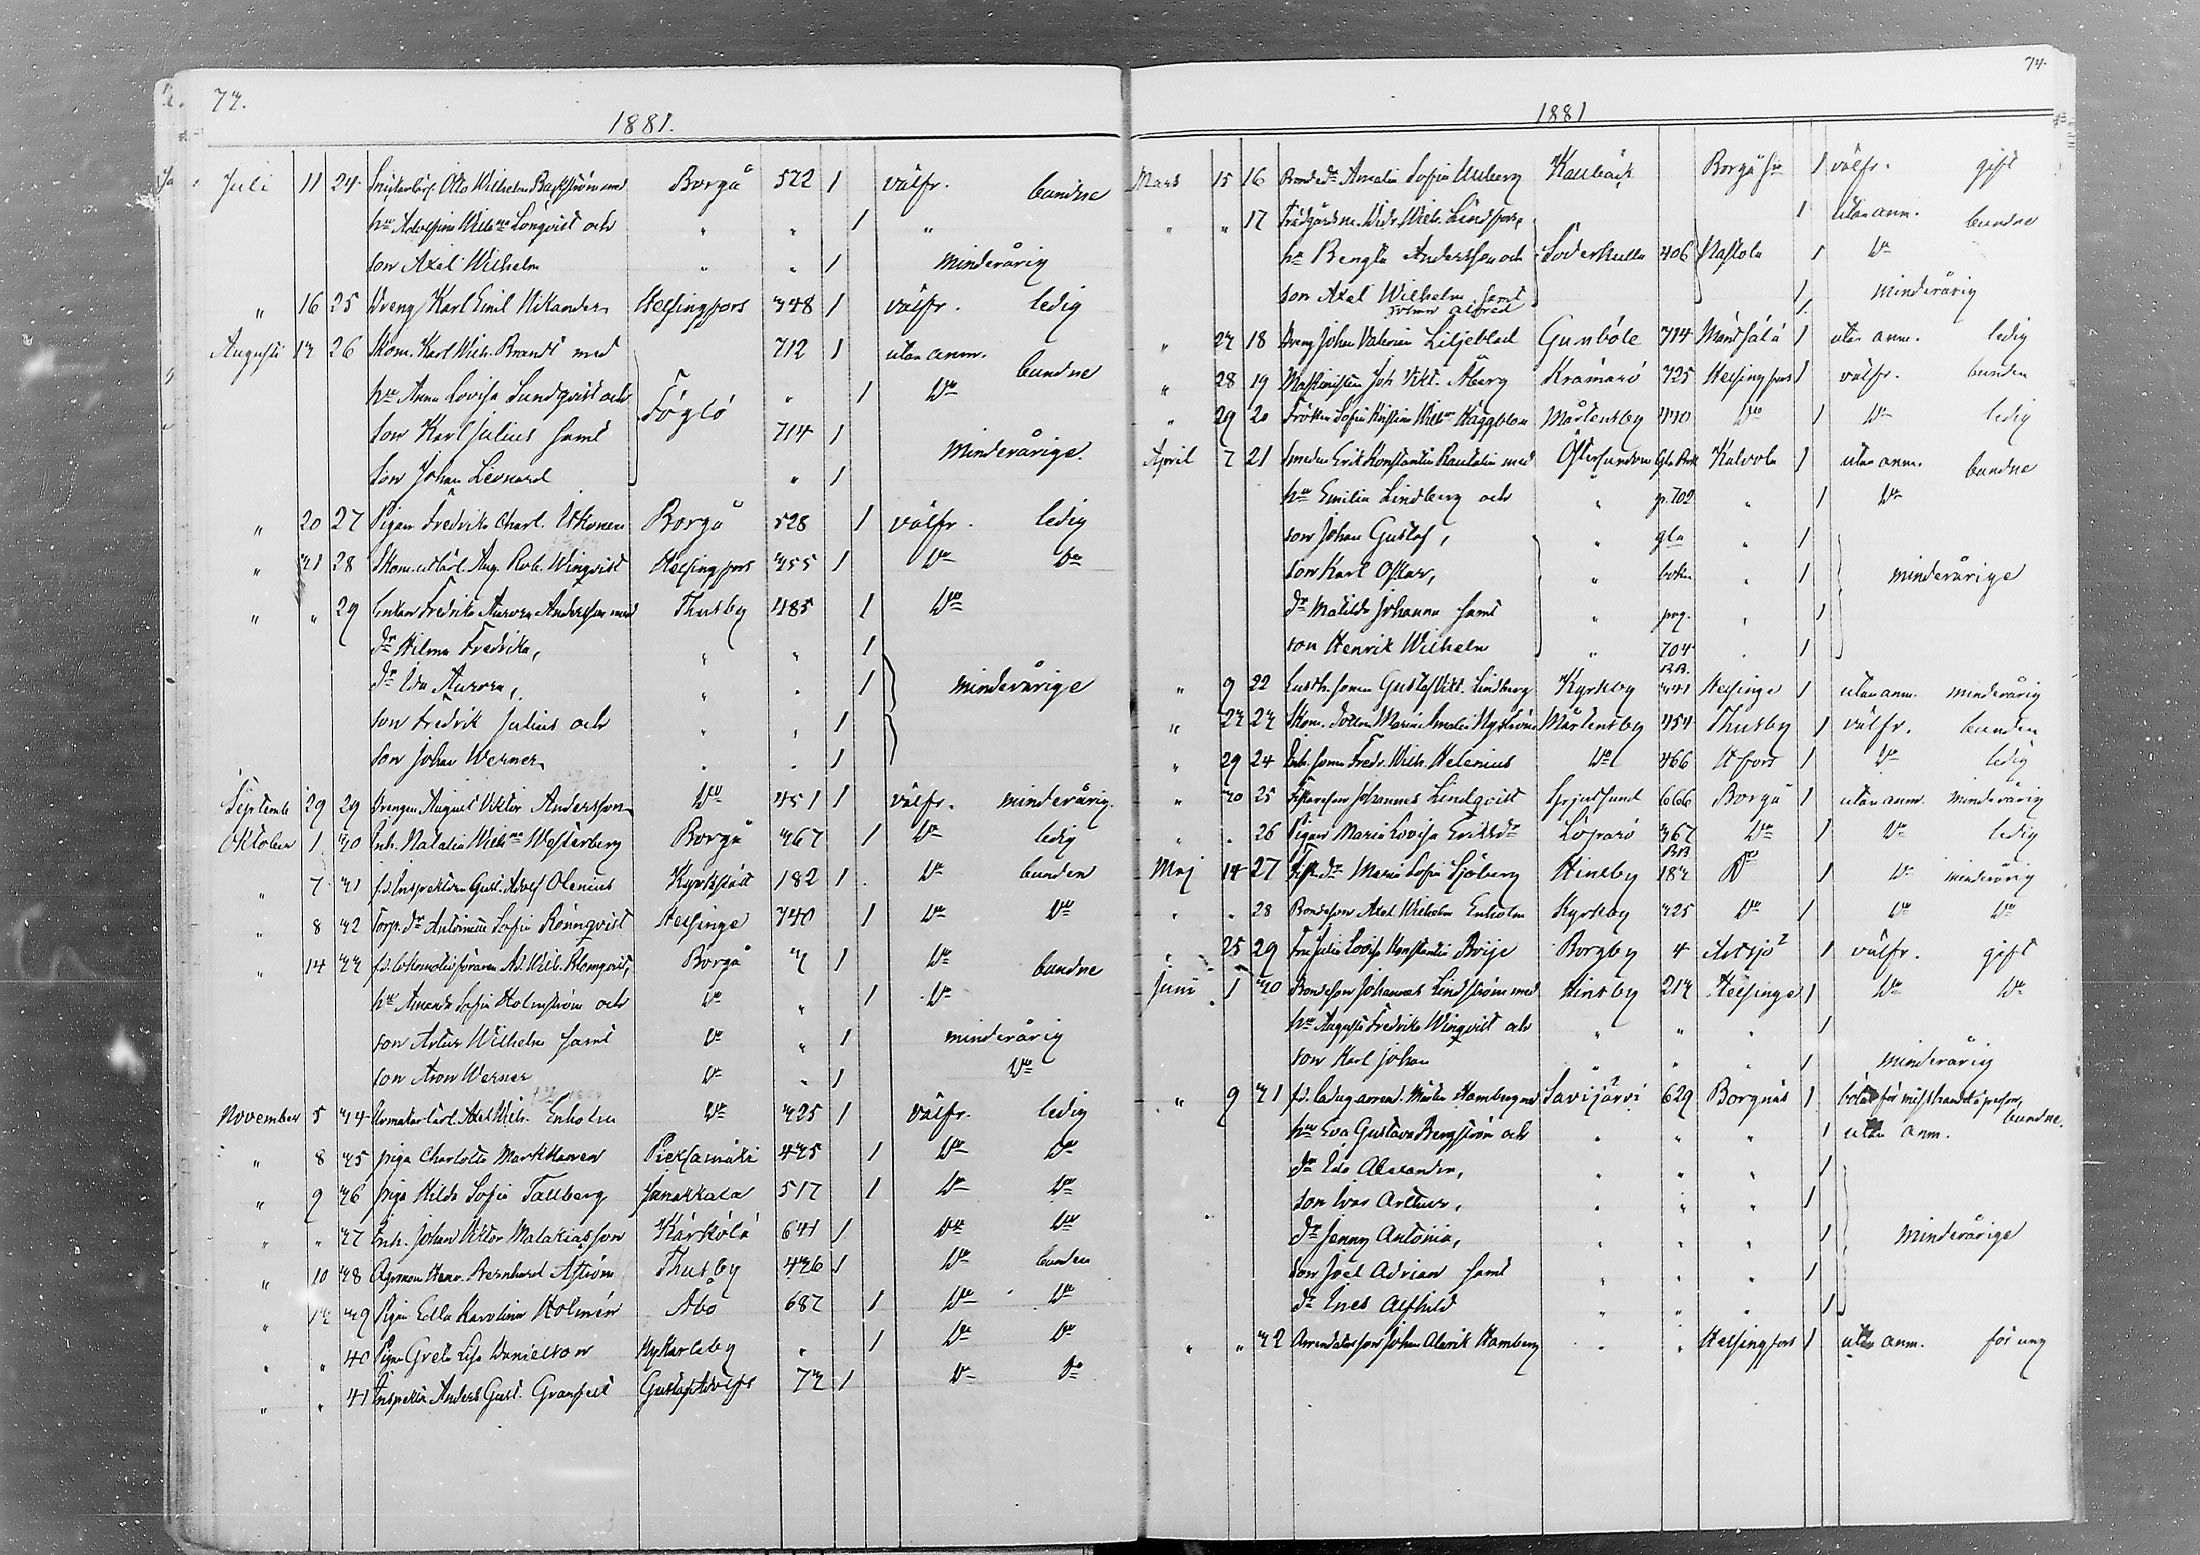 73.
1881.
Juli 11 24 Otto Wilhelm Backström med Borgå 522 1 välfr. bundne
hu Adolfina Wilhna Lönqvist och " " 1 "
son Axel Wilhelm " " 1 minderårig
" 16 25 Dreng Karl Emil Nikander Helsingfors 348 1 välfr. ledig
Augusti 13 26 Skom. Karl Wilh. Brandt med 712 1 utan anm. bundne
hu Anna Lovisa Lundqvist och Föglö " 1 Do
son Karl Julius samt 714 1
son Johan Leonard " 1 Minderårige.
" 20 27 Pigan Fredrika Charl. Ikonen Borgå 528 1 välfr. ledig
" 31 28 Aug. Rob. Wingvist Helsingfors 355 1 Do Do
" " 29 Enkan Fredrika Aurora Andersson med Thusby 485 1 Do
dr Hilma Fredrika, " " 1
dr Ida Aurora, " " 1 minderårige
son Fredrik Julius och " " 1
son Johan Werner " " 1
Septemb 29 29 Drengen August Viktor Andersson Do 451 1 välfr. minderårig.
Oktober 1 30 Inh. Natalia Wilhna Westerberg Borgå 367 1 Do ledig
" 7 31 f.d. Inspektoren Gust. Adolf Olenius Kyrkslätt 182 1 Do bunden
" 8 32 Torp.dr Antonina Sofia Rönnqvist Helsinge 340 1 Do Do
" 14 33 f.d. lokomotivföraren Ad. Wilh. Blomqvist, Borgå 3 1 Do bundne
hu Amanda Sofia Holmström och Do " 1 Do
son Artur Wilhelm samt Do " 1 minderårig
son Aron Werner Do " 1 Do
November 5 34 Axel Wilh. Enholm Do 325 1 välfr. ledig
" 8 35 piga Charlotta Markkanen Pieksämäki 435 1 Do Do
" 9 36 piga Hilda Sofia Tallberg Janakkala 517 1 Do Do
" " 37 Inh. Johan Viktor Malakiasson Kärkölä 641 1 Do Do
" 10 38 Agronom Henr. Bernhard Åström Thusby 436 1 Do bunden
" 13 39 Pigan Edla Karolina Holmén Åbo 687 1 Do Do
" " 40 Pigan Greta Lisa Danielson NyKarleby " 1 Do Do
" " 41 Inspektor Anders Gust. Granfelt Gustaf Adolfs 73 1 Do Do
74.
1881
Mars 15 16 Bondedr Amalia Sofia Kallbäck Borgå sn 1 välfr. gift
" " 17 Trädgårdsm. Widr. Wilh. Lindfors, 1 utan anm. bundne
hu Bengta Andersson och Söderkulla 406 Nastola 1 Do
son Axel Wilhelm samt 1 minderårig
sonen Alfred 1
" 23 18 Dreng Johan Valerian Liljeblad Gumböle 714 Mäntsälä 1 utan anm. ledig
" 28 19 Maskinisten Joh. Vikt. Åberg Kråmarö 725 Helsingfors 1 välfr. bunden
" 29 20 Fröken Sofia Kristina Wilhna Häggblom Mårtensby 440 Do 1 Do ledig
April 7 21 Smeden Erik Konstantin Rautalin med Östersundom Gla Bok Kalvola 1 utan anm. bundne
hu Emilia Lindberg och " p. 702 " 1 Do
son Johan Gustaf, " gla " 1
son Karl Oskar, " boken " 1 minderårige
dr Matilda Johanna samt " pag. " 1
son Henrik Wilhelm " 704 " 1
" 9 22 Gustaf Vikt. Lindberg Kyrkby B.B. 341 Helsinge 1 utan anm. minderårig
" 23 23 Skom. Maria Amalia Nyström Mårtensby 454 Thusby 1 välfr. bunden
" 29 24 Inh. sonen Fredr. Wilh. Helenius Do 466 Hfors 1 Do ledig
" 30 25 Johannes Lindqvist Spjutsund 666 Borgå 1 utan anm. minderårig
" " 26 Pigan Maria Lovisa Eriksdr Löparö 367 Do 1 Do ledig
Maj 14 27 Maria Sofia Sjöberg Hineby B.B. 183 Do 1 Do minderårig
" " 28 Bondeson Axel Wilhelm Enholm Kyrkby 325 Do 1 Do Do
" 25 29 Fru Julia Lovisa Konstantia Boije Borgby 4 Artsjö 1 välfr. gift
Juni 1 30 Bondeson Johannes Lindström med Hinsby 213 Helsinge 1 Do Do
hu Augusta Fredrika Wingvist och " " " 1
son Karl Johan " " " 1 minderårig
" 9 31 f.d. ladug.arrend. Hamberg med Savijärvi 629 Borgnäs 1 för misshandel å person, bundne.
hu Eva Gustava Bergström och " " " 1 utan anm.
dr Ida Alexandra, " " " 1
son Ivar Arthur, " " " 1
dr Jenny Antonia, " " " 1 Minderårige
son Joel Adrian samt " " " 1
dr Ines Alfhild " " " 1
" " 32 Arrendatorsson Johan Alarik Hamberg " " Helsingfors 1 utan anm. för ung